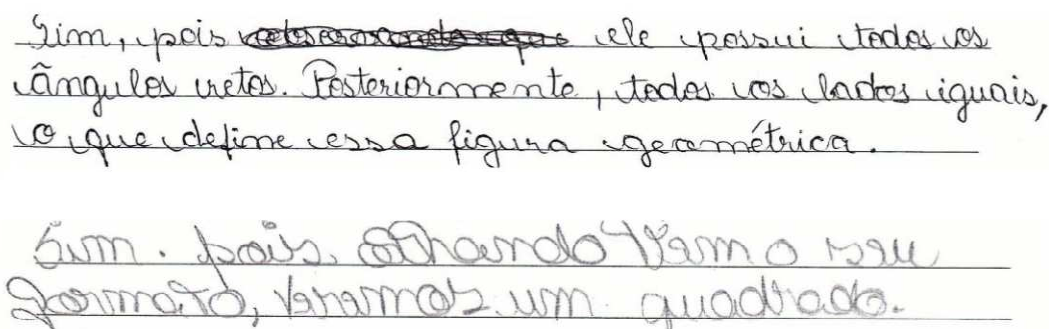 Sim, pois ele possui todos os
ângulos retos. Posteriormente, todos os lados iguais,
o que define essa figura geométrica.
Sim. pois, olhando bem o seu
formato, veremos um quadrado.